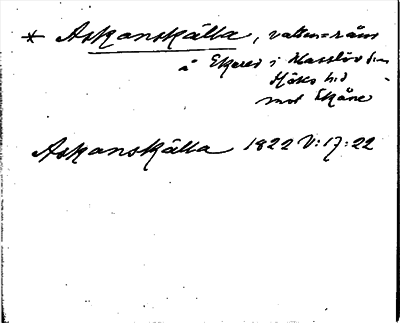 * Askanskälla, vatten=näm
å Ekered i Hasslöv sn
Höks hd
mot Skåne
Askanskälla 1822 V:17:22